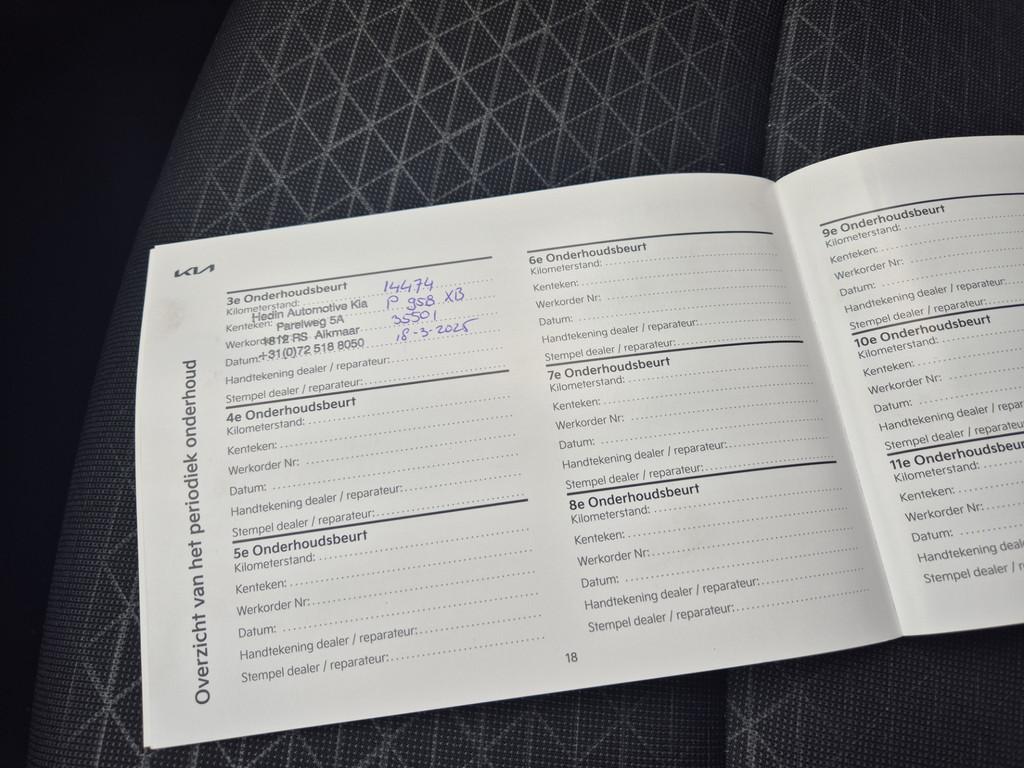 KIA
Overzicht van het periodiek onderhoud
3e Onderhoudsbeurt
Kilometerstand: 14474
Hedin Automotive Kia
Kenteken: P 958 XB
Parelweg 5A
Werkorder 35501
1812 RS Alkmaar
Datum: 18-3-2025
+31(0)72 518 8050
Handtekening dealer / reparateur:
Stempel dealer / reparateur:
4e Onderhoudsbeurt
Kilometerstand:
Kenteken:
Werkorder Nr:
Datum:
Handtekening dealer / reparateur:
Stempel dealer / reparateur:
5e Onderhoudsbeurt
Kilometerstand:
Kenteken:
Werkorder Nr:
Datum:
Handtekening dealer / reparateur:
Stempel dealer / reparateur:
6e Onderhoudsbeurt
Kilometerstand:
Kenteken:
Werkorder Nr:
Datum:
Handtekening dealer / reparateur:
Stempel dealer / reparateur:
7e Onderhoudsbeurt
Kilometerstand:
Kenteken:
Werkorder Nr:
Datum:
Handtekening dealer / reparateur:
Stempel dealer / reparateur:
8e Onderhoudsbeurt
Kilometerstand:
Kenteken:
Werkorder Nr:
Datum:
Handtekening dealer / reparateur:
Stempel dealer / reparateur:
18
9e Onderhoudsbeurt
Kilometerstand:
Kenteken:
Werkorder Nr:
Datum:
Handtekening dealer / reparateur:
Stempel dealer / reparateur:
10e Onderhoudsbeurt
Kilometerstand:
Kenteken:
Werkorder Nr:
Datum:
Handtekening dealer / repar
Stempel dealer / reparateur
11e Onderhoudsbeur
Kilometerstand:
Kenteken:
Werkorder Nr:
Datum:
Handtekening deale
Stempel dealer / r